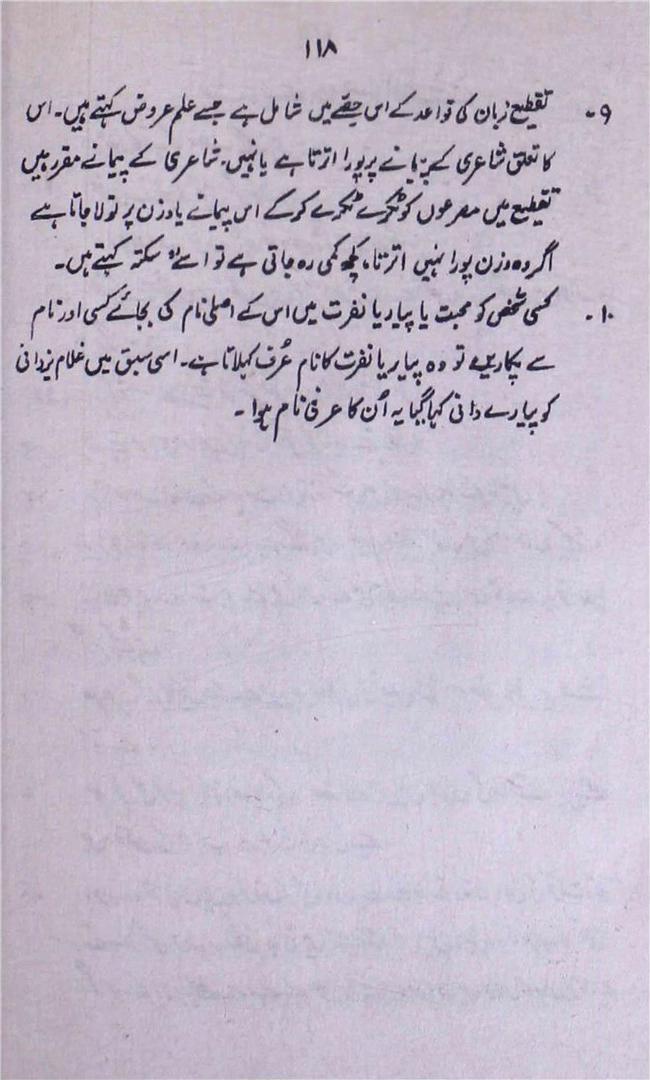 ۱۱۸
۹۔ تقطیع زبان کی قواعد کے اس حصّے میں شامل ہے جسے علم عروض کہتے ہیں۔ اس
کا تعلق شاعری کے پیمانے پر پورا اترتا ہے یا نہیں۔ شاعری کے پیمانے مقرر ہیں
تقطیع میں مصرعوں کو ٹکڑے ٹکڑے کر کے اس پیمانے یا وزن پر تولا جاتا ہے
اگر وہ وزن پورا نہیں اترتا، کچھ کمی رہ جاتی ہے تو اسے سکتہ کہتے ہیں۔
۱۰۔ کسی شخص کو محبت یا پیار یا نفرت میں اس کے اصلی نام کی بجائے کسی اور نام
سے پکاریں تو وہ پیار یا نفرت کا نام عُرف کہلاتا ہے۔ اسی سبق میں غلام یزدانی
کو پیارے دانی کہا گیا یہ اُن کا عرفی نام ہوا۔